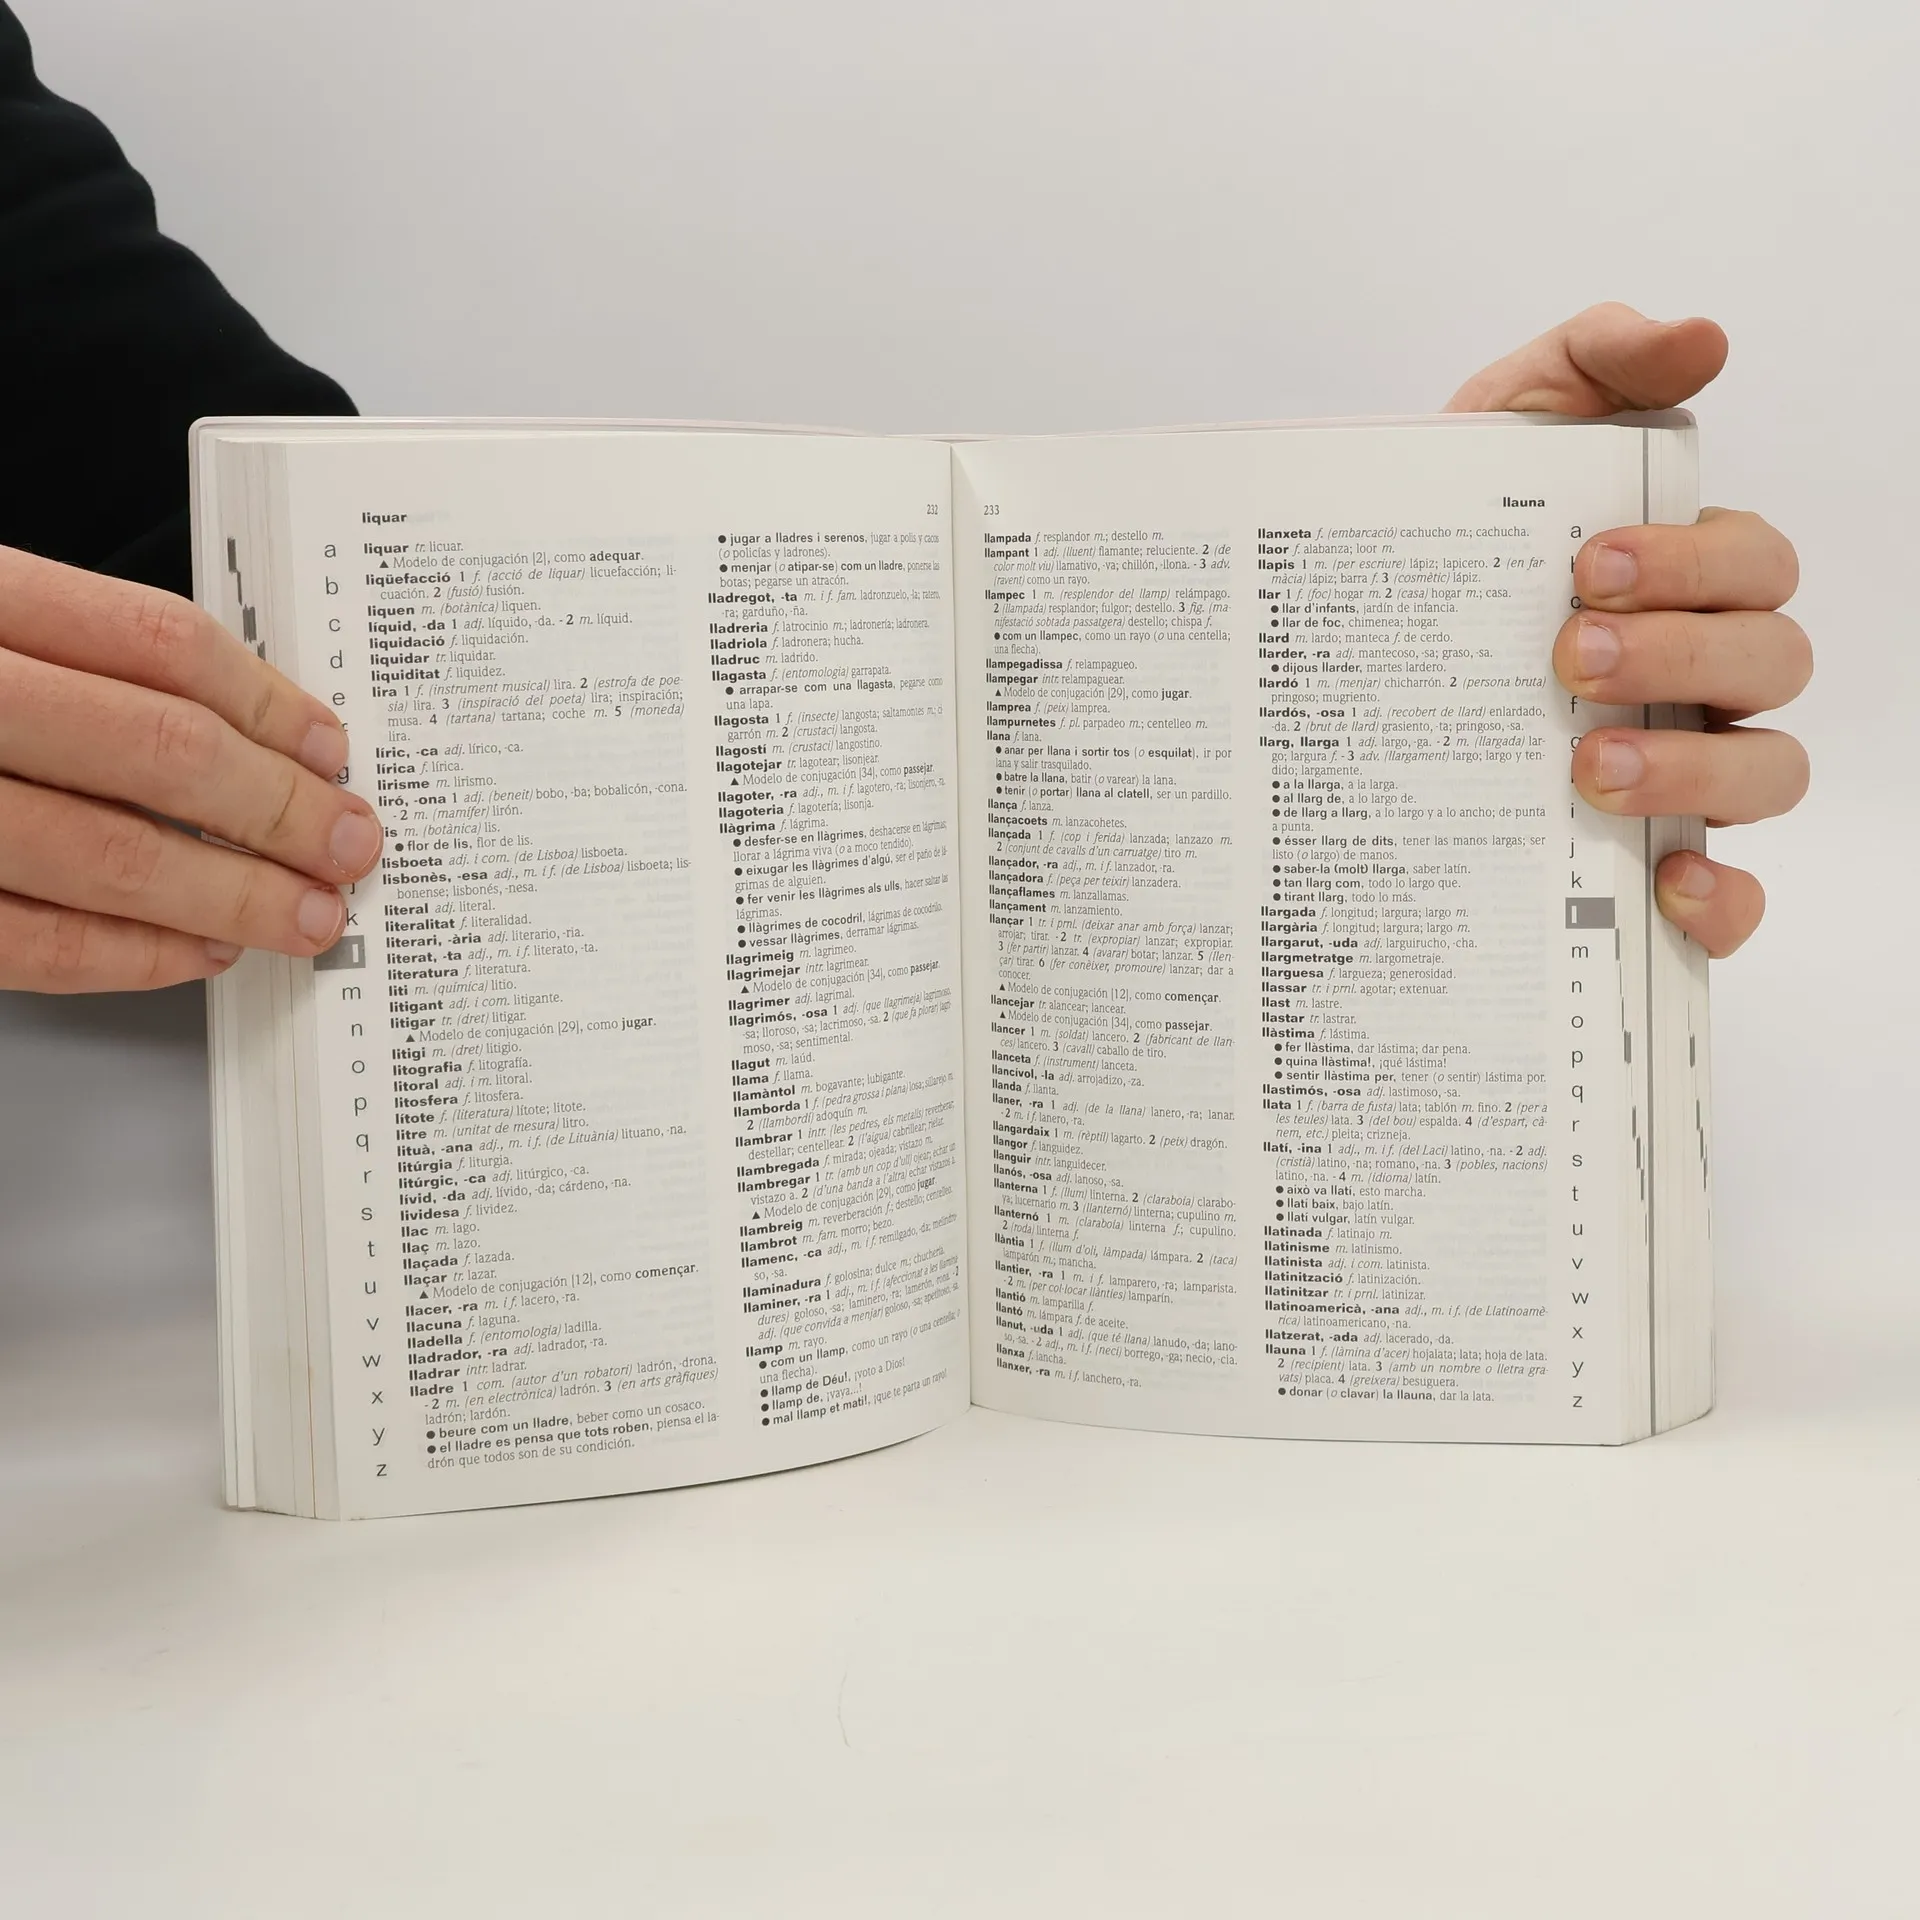 liquar
232
a
b
c
d
e
g
k
l
m
n
o
p
q
r
s
t
u
v
w
x
y
z
liquar tr. licuar.
▲ Modelo de conjugación |2|, como adequar.
liqüefacció 1 f. (acció de liquar) licuefacción; li-
cuación. 2 (fusió) fusión.
liquen m. (botànica) liquen.
líquid, -da 1 adj. líquido, -da. - 2 m. líquid.
liquidació f. liquidación.
liquidar tr. liquidar.
liquiditat f. liquidez.
lira 1 f. (instrument musical) lira. 2 (estrofa de poe-
sia) lira. 3 (inspiració del poeta) lira; inspiración;
musa. 4 (tartana) tartana; coche m. 5 (moneda)
lira.
líric, -ca adj. lírico, -ca.
lírica f. lírica.
lirisme m. lirismo.
liró, -ona 1 adj. (beneit) bobo, -ba; bobalicón, -cona.
- 2 m. (mamífer) lirón.
lis m. (botànica) lis.
● flor de lis, flor de lis.
lisboeta adj. i com. (de Lisboa) lisboeta.
lisbonès, -esa adj., m. i f. (de Lisboa) lisboeta; lis-
bonense; lisbonés, -nesa.
literal adj. literal.
literalitat f. literalidad.
literari, -ària adj. literario, -ria.
literat, -ta adj., m. i f. literato, -ta.
literatura f. literatura.
liti m. (química) litio.
litigant adj. i com. litigante.
litigar tr. (dret) litigar.
▲ Modelo de conjugación |29|, como jugar.
litigi m. (dret) litigio.
litografia f. litografía.
litoral adj. i m. litoral.
litosfera f. litosfera.
lítote f. (literatura) lítote; litote.
litre m. (unitat de mesura) litro.
lituà, -ana adj., m. i f. (de Lituània) lituano, -na.
litúrgia f. liturgia.
litúrgic, -ca adj. litúrgico, -ca.
lívid, -da adj. lívido, -da; cárdeno, -na.
lividesa f. lividez.
llac m. lago.
llaç m. lazo.
llaçada f. lazada.
llaçar tr. lazar.
▲ Modelo de conjugación |12|, como començar.
llacer, -ra m. i f. lacero, -ra.
llacuna f. laguna.
lladella f. (entomologia) ladilla.
lladrador, -ra adj. ladrador, -ra.
lladrar intr. ladrar.
lladre 1 com. (autor d'un robatori) ladrón, -drona.
- 2 m. (en electrònica) ladrón. 3 (en arts gràfiques)
ladrón; lardón.
● beure com un lladre, beber como un cosaco.
● el lladre es pensa que tots roben, piensa el la-
drón que todos son de su condición.
● jugar a lladres i serenos, jugar a polis y cacos
(o policías y ladrones).
● menjar (o atipar-se) com un lladre, ponerse las
botas; pegarse un atracón.
lladregot, -ta m. i f. fam. ladronzuelo, -la; ratero,
-ra; garduño, -ña.
lladreria f. latrocinio m.; ladronería; ladronera.
lladriola f. ladronera; hucha.
lladruc m. ladrido.
llagasta f. (entomologia) garrapata.
● arrapar-se com una llagasta, pegarse como
una lapa.
llagosta 1 f. (insecte) langosta; saltamontes m.; ci-
garrón m. 2 (crustaci) langosta.
llagostí m. (crustaci) langostino.
llagotejar tr. lagotear; lisonjear.
▲ Modelo de conjugación |34|, como passejar.
llagoter, -ra adj., m. i f. lagotero, -ra; lisonjero, -ra.
llagoteria f. lagotería; lisonja.
llàgrima f. lágrima.
● desfer-se en llàgrimes, deshacerse en lágrimas;
llorar a lágrima viva (o a moco tendido).
● eixugar les llàgrimes d'algú, ser el paño de lá-
grimas de alguien.
● fer venir les llàgrimes als ulls, hacer saltar las
lágrimas.
● llàgrimes de cocodril, lágrimas de cocodrilo.
● vessar llàgrimes, derramar lágrimas.
llagrimeig m. lagrimeo.
llagrimejar intr. lagrimear.
▲ Modelo de conjugación |34|, como passejar.
llagrimer adj. lagrimal.
llagrimós, -osa 1 adj. (que llagrimeja) lagrimoso,
-sa; lloroso, -sa; lacrimoso, -sa. 2 (que fa plorar) lagri-
moso, -sa; sentimental.
llagut m. laúd.
llama f. llama.
llamàntol m. bogavante; lubigante.
llamborda 1 f. (pedra grossa i plana) losa; sillarejo m.
2 (llambordí) adoquín m.
llambrar 1 intr. (les pedres, els metalls) reverberar;
destellar; centellear. 2 (l'aigua) cabrillear; rielar.
llambregada f. mirada; ojeada; vistazo m.
llambregar 1 tr. (amb un cop d'ull) ojear; echar un
vistazo a. 2 (d'una banda a l'altra) echar vistazos a.
▲ Modelo de conjugación |29|, como jugar.
llambreig m. reverberación f.; destello; centelleo.
llambrot m. fam. morro; bezo.
llamenc, -ca adj., m. i f. remilgado, -da; melindro-
so, -sa.
llaminadura f. golosina; dulce m.; chuchería.
llaminer, -ra 1 adj., m. i f. (afeccionat a les llamina-
dures) goloso, -sa; laminero, -ra; lamerón, -rona. - 2
adj. (que convida a menjar) goloso, -sa; apetitoso, -sa.
llamp m. rayo.
● com un llamp, como un rayo (o una centella; o
una flecha).
● llamp de Déu!, ¡voto a Dios!
● llamp de, ¡vaya...!
● mal llamp et mati!, ¡que te parta un rayo!
233
llauna
llampada f. resplandor m.; destello m.
llampant 1 adj. (lluent) flamante; reluciente. 2 (de
color molt viu) llamativo, -va; chillón, -llona. - 3 adv.
(ravent) como un rayo.
llampec 1 m. (resplendor del llamp) relámpago.
2 (llampada) resplandor; fulgor; destello. 3 fig. (ma-
nifestació sobtada passatgera) destello; chispa f.
● com un llampec, como un rayo (o una centella;
una flecha).
llampegadissa f. relampagueo.
llampegar intr. relampaguear.
▲ Modelo de conjugación |29|, como jugar.
llamprea f. (peix) lamprea.
llampurnetes f. pl. parpadeo m.; centelleo m.
llana f. lana.
● anar per llana i sortir tos (o esquilat), ir por
lana y salir trasquilado.
● batre la llana, batir (o varear) la lana.
● tenir (o portar) llana al clatell, ser un pardillo.
llança f. lanza.
llançacoets m. lanzacohetes.
llançada 1 f. (cop i ferida) lanzada; lanzazo m.
2 (conjunt de cavalls d'un carruatge) tiro m.
llançador, -ra adj., m. i f. lanzador, -ra.
llançadora f. (peça per teixir) lanzadera.
llançaflames m. lanzallamas.
llançament m. lanzamiento.
llançar 1 tr. i prnl. (deixar anar amb força) lanzar;
arrojar; tirar. - 2 tr. (expropiar) lanzar; expropiar.
3 (fer partir) lanzar. 4 (avarar) botar; lanzar. 5 (llen-
çar) tirar. 6 (fer conèixer, promoure) lanzar; dar a
conocer.
▲ Modelo de conjugación |12|, como començar.
llancejar tr. alancear; lancear.
▲ Modelo de conjugación |34|, como passejar.
llancer 1 m. (soldat) lancero. 2 (fabricant de llan-
ces) lancero. 3 (cavall) caballo de tiro.
llanceta f. (instrument) lanceta.
llancívol, -la adj. arrojadizo, -za.
llanda f. llanta.
llaner, -ra 1 adj. (de la llana) lanero, -ra; lanar.
- 2 m. i f. lanero, -ra.
llangardaix 1 m. (rèptil) lagarto. 2 (peix) dragón.
llangor f. languidez.
llanguir intr. languidecer.
llanós, -osa adj. lanoso, -sa.
llanterna 1 f. (llum) linterna. 2 (claraboia) clarabo-
ya; lucernario m. 3 (llanternó) linterna; cupulino m.
llanternó 1 m. (claraboia) linterna f.; cupulino.
2 (roda) linterna f.
llàntia 1 f. (llum d'oli, làmpada) lámpara. 2 (taca)
lamparón m.; mancha.
llantier, -ra 1 m. i f. lamparero, -ra; lamparista.
- 2 m. (per col·locar llànties) lamparín.
llantió m. lamparilla f.
llantó m. lámpara f. de aceite.
llanut, -uda 1 adj. (que té llana) lanudo, -da; lano-
so, -sa. - 2 adj., m. i f. (neci) borrego, -ga; necio, -cia.
llanxa f. lancha.
llanxer, -ra m. i f. lanchero, -ra.
llanxeta f. (embarcació) cachucho m.; cachucha.
llaor f. alabanza; loor m.
llapis 1 m. (per escriure) lápiz; lapicero. 2 (en far-
màcia) lápiz; barra f. 3 (cosmètic) lápiz.
llar 1 f. (foc) hogar m. 2 (casa) hogar m.; casa.
● llar d'infants, jardín de infancia.
● llar de foc, chimenea; hogar.
llard m. lardo; manteca f. de cerdo.
llarder, -ra adj. mantecoso, -sa; graso, -sa.
● dijous llarder, martes lardero.
llardó 1 m. (menjar) chicharrón. 2 (persona bruta)
pringoso; mugriento.
llardós, -osa 1 adj. (recobert de llard) enlardado,
-da. 2 (brut de llard) grasiento, -ta; pringoso, -sa.
llarg, llarga 1 adj. largo, -ga. - 2 m. (llargada) lar-
go; largura f. - 3 adv. (llargament) largo; largo y ten-
dido; largamente.
● a la llarga, a la larga.
● al llarg de, a lo largo de.
● de llarg a llarg, a lo largo y a lo ancho; de punta
a punta.
● ésser llarg de dits, tener las manos largas; ser
listo (o largo) de manos.
● saber-la (molt) llarga, saber latín.
● tan llarg com, todo lo largo que.
● tirant llarg, todo lo más.
llargada f. longitud; largura; largo m.
llargària f. longitud; largura; largo m.
llargarut, -uda adj. larguirucho, -cha.
llargmetratge m. largometraje.
llarguesa f. largueza; generosidad.
llassar tr. i prnl. agotar; extenuar.
llast m. lastre.
llastar tr. lastrar.
llàstima f. lástima.
● fer llàstima, dar lástima; dar pena.
● quina llàstima!, ¡qué lástima!
● sentir llàstima per, tener (o sentir) lástima por.
llastimós, -osa adj. lastimoso, -sa.
llata 1 f. (barra de fusta) lata; tablón m. fino. 2 (per a
les teules) lata. 3 (del bou) espalda. 4 (d'espart, cà-
nem, etc.) pleita; crizneja.
llatí, -ina 1 adj., m. i f. (del Laci) latino, -na. - 2 adj.
(cristià) latino, -na; romano, -na. 3 (pobles, nacions)
latino, -na. - 4 m. (idioma) latín.
● això va llatí, esto marcha.
● llatí baix, bajo latín.
● llatí vulgar, latín vulgar.
llatinada f. latinajo m.
llatinisme m. latinismo.
llatinista adj. i com. latinista.
llatinització f. latinización.
llatinitzar tr. i prnl. latinizar.
llatinoamericà, -ana adj., m. i f. (de Llatinoamè-
rica) latinoamericano, -na.
llatzerat, -ada adj. lacerado, -da.
llauna 1 f. (làmina d'acer) hojalata; lata; hoja de lata.
2 (recipient) lata. 3 (amb un nombre o lletra gra-
vats) placa. 4 (greixera) besuguera.
● donar (o clavar) la llauna, dar la lata.
a
c
f
i
j
k
l
m
n
o
p
q
r
s
t
u
v
w
x
y
z